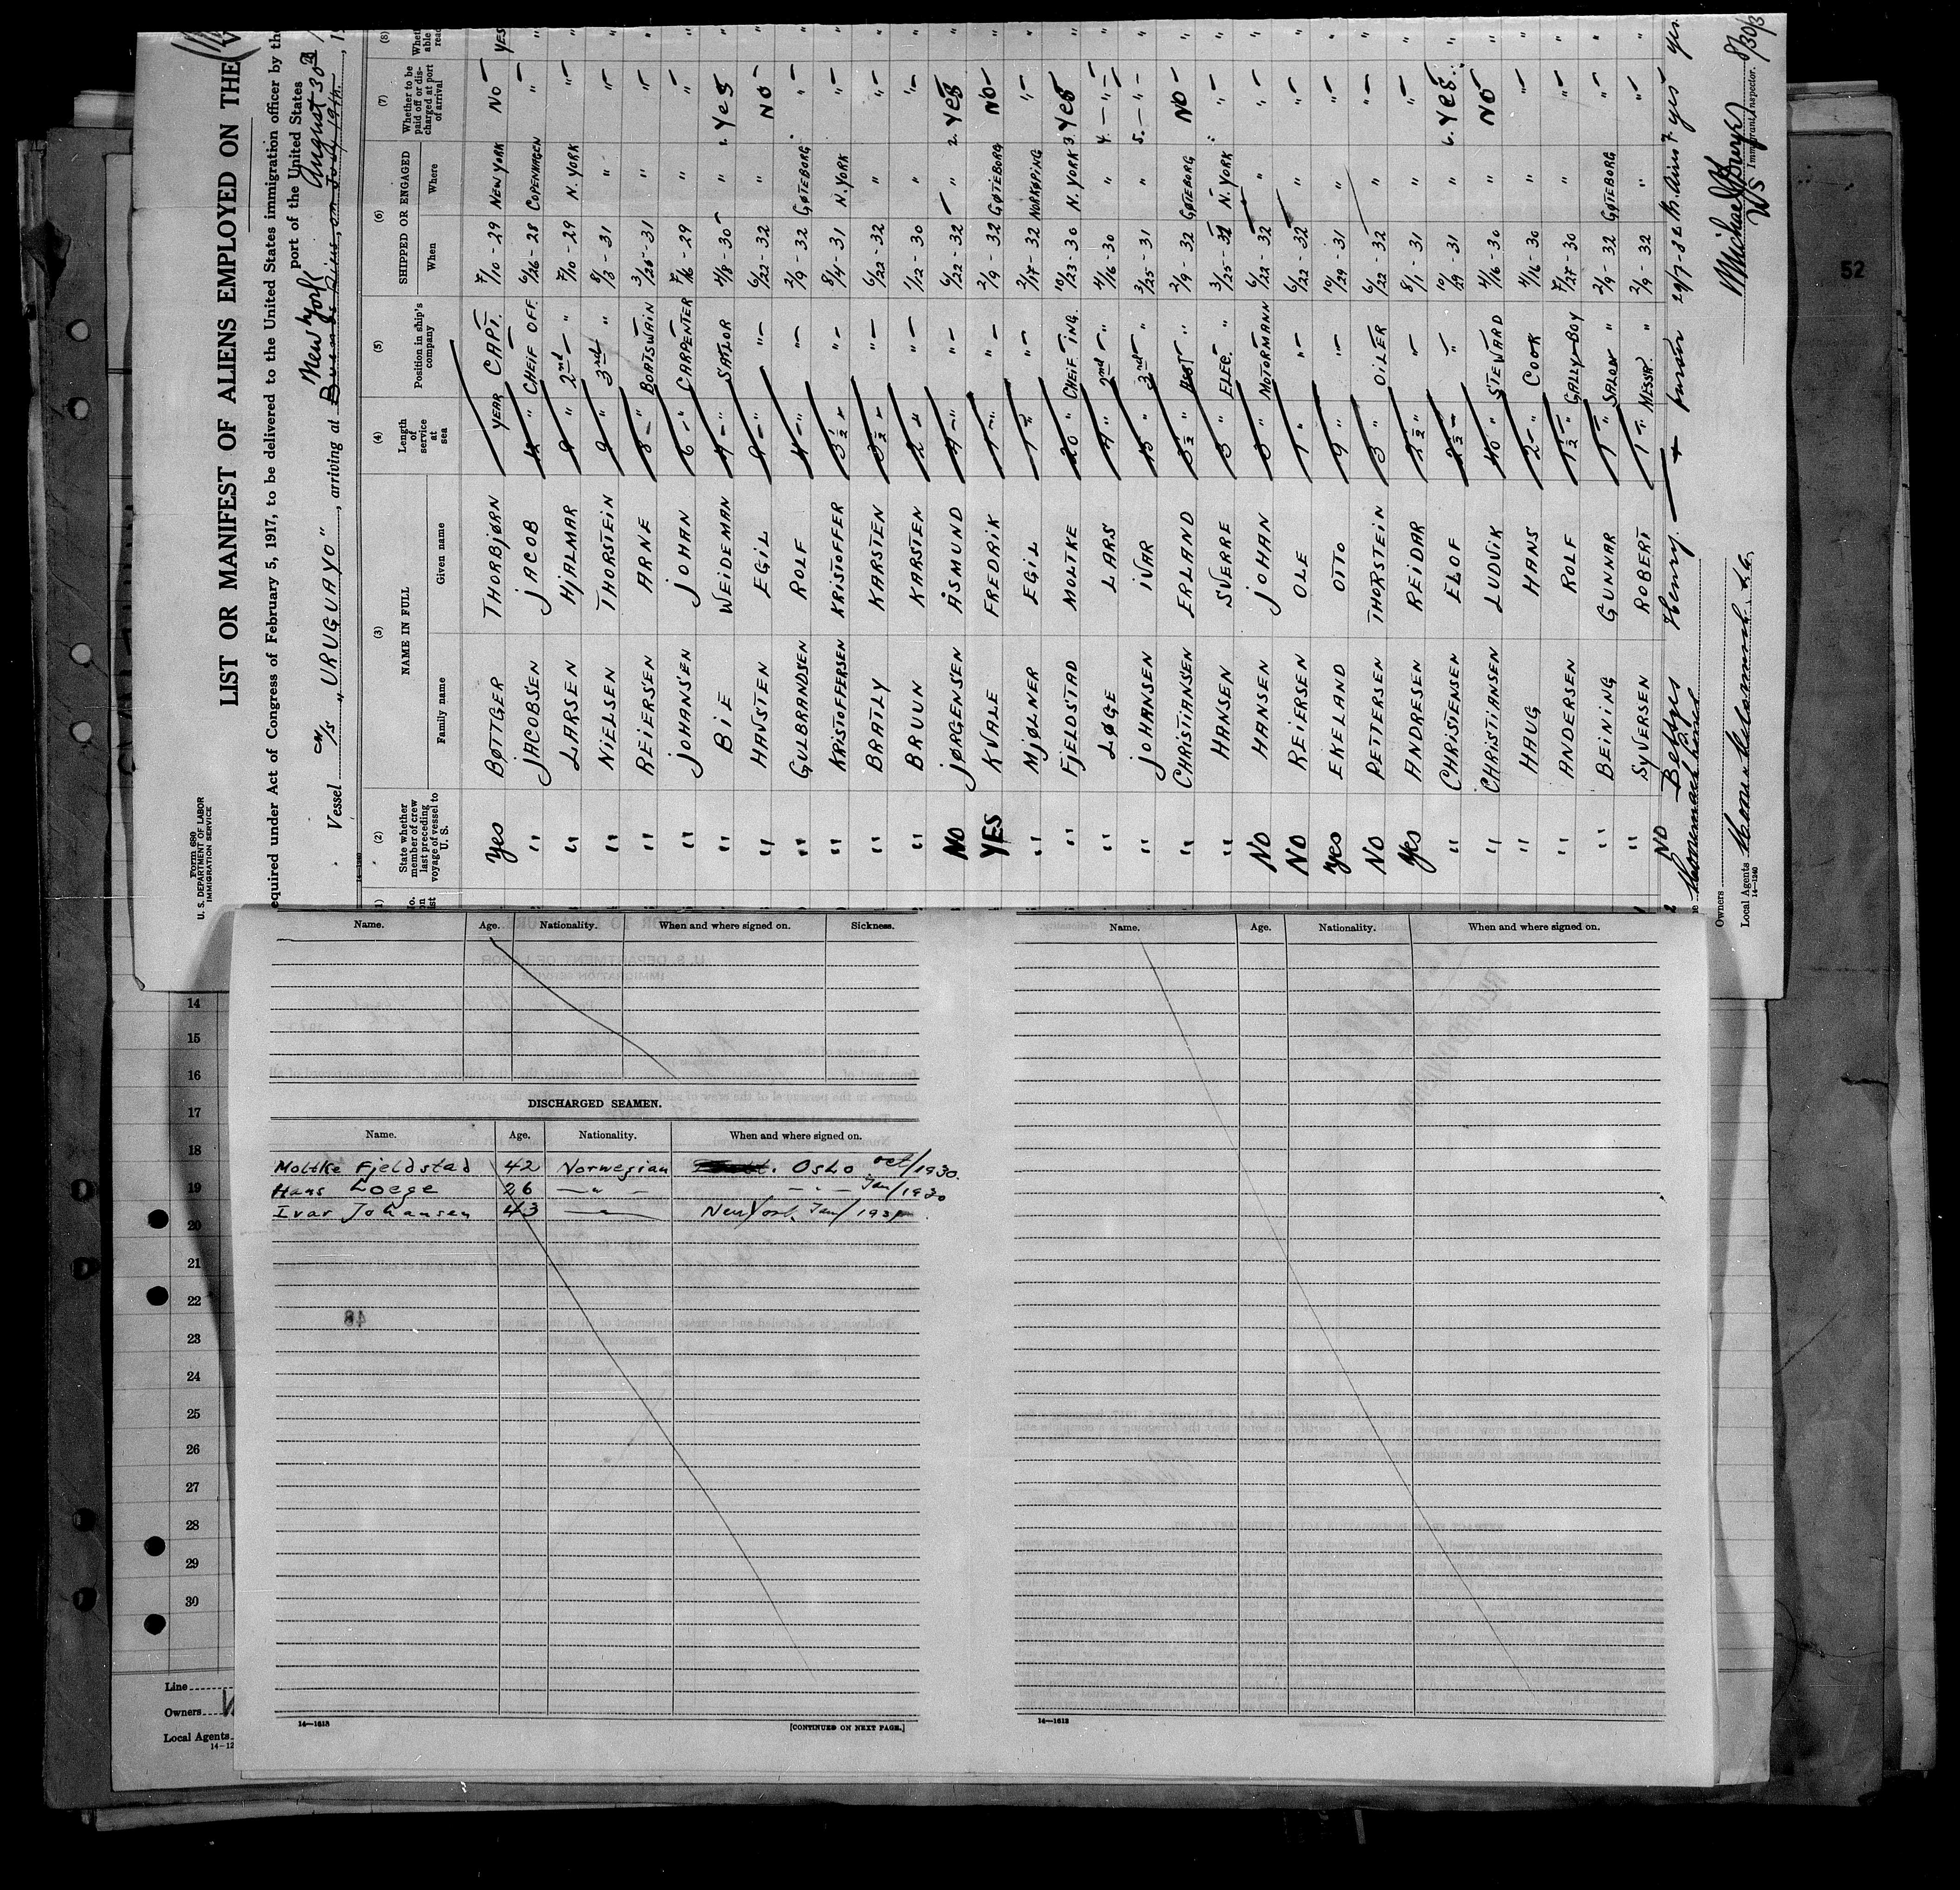 Form 680
U. S. DEPARTMENT OF LABOR
IMMIGRATION SERVICE
LIST OR MANIFEST OF ALIENS EMPLOYED ON THE
equired under Act of Congress of February 5, 1917, to be delivered to the United States immigration officer by the
port of the United States
New York August 30th
Vessel M/S "URUGUAYO", arriving at Buenos Aires, on July 19th, 1
14-1240
(1) (2) (3) (4) (5) (6) (7) (8)
State whether member of crew last preceding voyage of vessel to U. S.
NAME IN FULL
Family name Given name
Length of service at sea
Position in ship's company
SHIPPED OR ENGAGED
When Where
Whether to be paid off or discharged at port of arrival
Yes BØTTGER THORBJØRN YEAR CAPT. 7/10 - 29 NEW YORK NO — YES
" JACOBSEN JACOB " CHEIF OFF. 6/26 - 28 COPENHAGEN " — "
" LARSEN HJALMAR " 2nd — " 7/10 - 29 N. YORK " — "
" NIELSEN THORSTEIN 9 " 3rd " 8/3 - 31 " " — "
" REIERSEN ARNE 8 — " BOATSWAIN 3/25 - 31 " " — "
" JOHANSEN JOHAN 6 — " CARPENTER 7/16 - 29 " " — "
" BIE WEIDEMAN — " SAILOR 4/8 - 30 " 1. Yes "
" HAVSTEN EGIL 9 — " " — 6/22 - 32 " NO — "
" GULBRANDSEN ROLF 4 — " " — 2/9 - 32 GØTEBORG " — "
" KRISTOFFERSEN KRISTOFFER 3½ " " — 8/4 - 31 N. YORK " — "
" BRATLY KARSTEN 3½ " " — 6/22 - 32 " " — "
" BRUUN KARSTEN 2 " " — 1/12 - 30 " " — "
NO JØRGENSEN ÅSMUND 4 — " " — 6/22 - 32 " 2. Yes "
YES KVALE FREDRIK 1 — " " — 2/9 - 32 GØTEBORG NO — "
" MJØLNER EGIL 1 " " — 2/17 - 32 NORKØPING " — "
" FJELDSTAD MOLTKE 20 " CHEIF ING. 10/23 - 30 N. YORK 3. Yes "
" LØGE LARS 4 " 2nd — " 4/16 - 30 " 4. — " — "
" JOHANSEN IVAR 15 " 3rd " 3/25 - 31 " 5. — " — "
" CHRISTIANSEN ERLAND 3½ " ASST " 2/9 - 32 GØTEBORG NO — "
" HANSEN SVERRE 3 " ELEC. " 3/25 - 32 N. YORK " — "
NO HANSEN JOHAN 3 " MOTORMANN 6/22 - 32 " " — "
NO REIERSEN OLE 1 " " — 6/22 - 32 " " — "
Yes EKELAND OTTO 9 " " — 10/29 - 31 " " — "
NO PETTERSEN THORSTEIN 3 " OILER 6/22 - 32 " " — "
Yes ANDRESEN REIDAR 2½ " " — 8/1 - 31 " " — "
" CHRISTENSEN ELOF 2½ — " 10/29 - 31 " 6. Yes "
" CHRISTIANSEN LUDVIK 40 " STEWARD 4/16 - 30 " NO "
" HAUG HANS 2 — " COOK 4/16 - 30 " " — "
" ANDERSEN ROLF 1½ — " GALLY-BOY 7/27 - 30 " " — "
" BEINING GUNNAR 1 — " SALON " 2/9 - 32 GØTEBORG " — "
" SYVERSEN ROBERT 1 — " MESSR. " 2/9 - 32 " " — "
NO Betzes Henry — 29/7-32 B. Aires 7. yes — yes
Owners
Local Agents
14-1240
Immigrant Inspector.
8/30/3
52
Name. Age. Nationality. When and where signed on. Sickness.
DISCHARGED SEAMEN.
Name. Age. Nationality. When and where signed on.
Moltke Fjeldstad 42 Norwegian Oslo Oct/1930.
Hans Loege 26 — " — — " — Jan/1930
Ivar Johansen 43 — " — New York Jan/1931
14—1613 [CONTINUED ON NEXT PAGE.]
Name. Age. Nationality. When and where signed on.
14—1613
14
15
16
17
18
19
20
21
22
23
24
25
26
27
28
29
30
Line
Owners
Local Agents
14-12